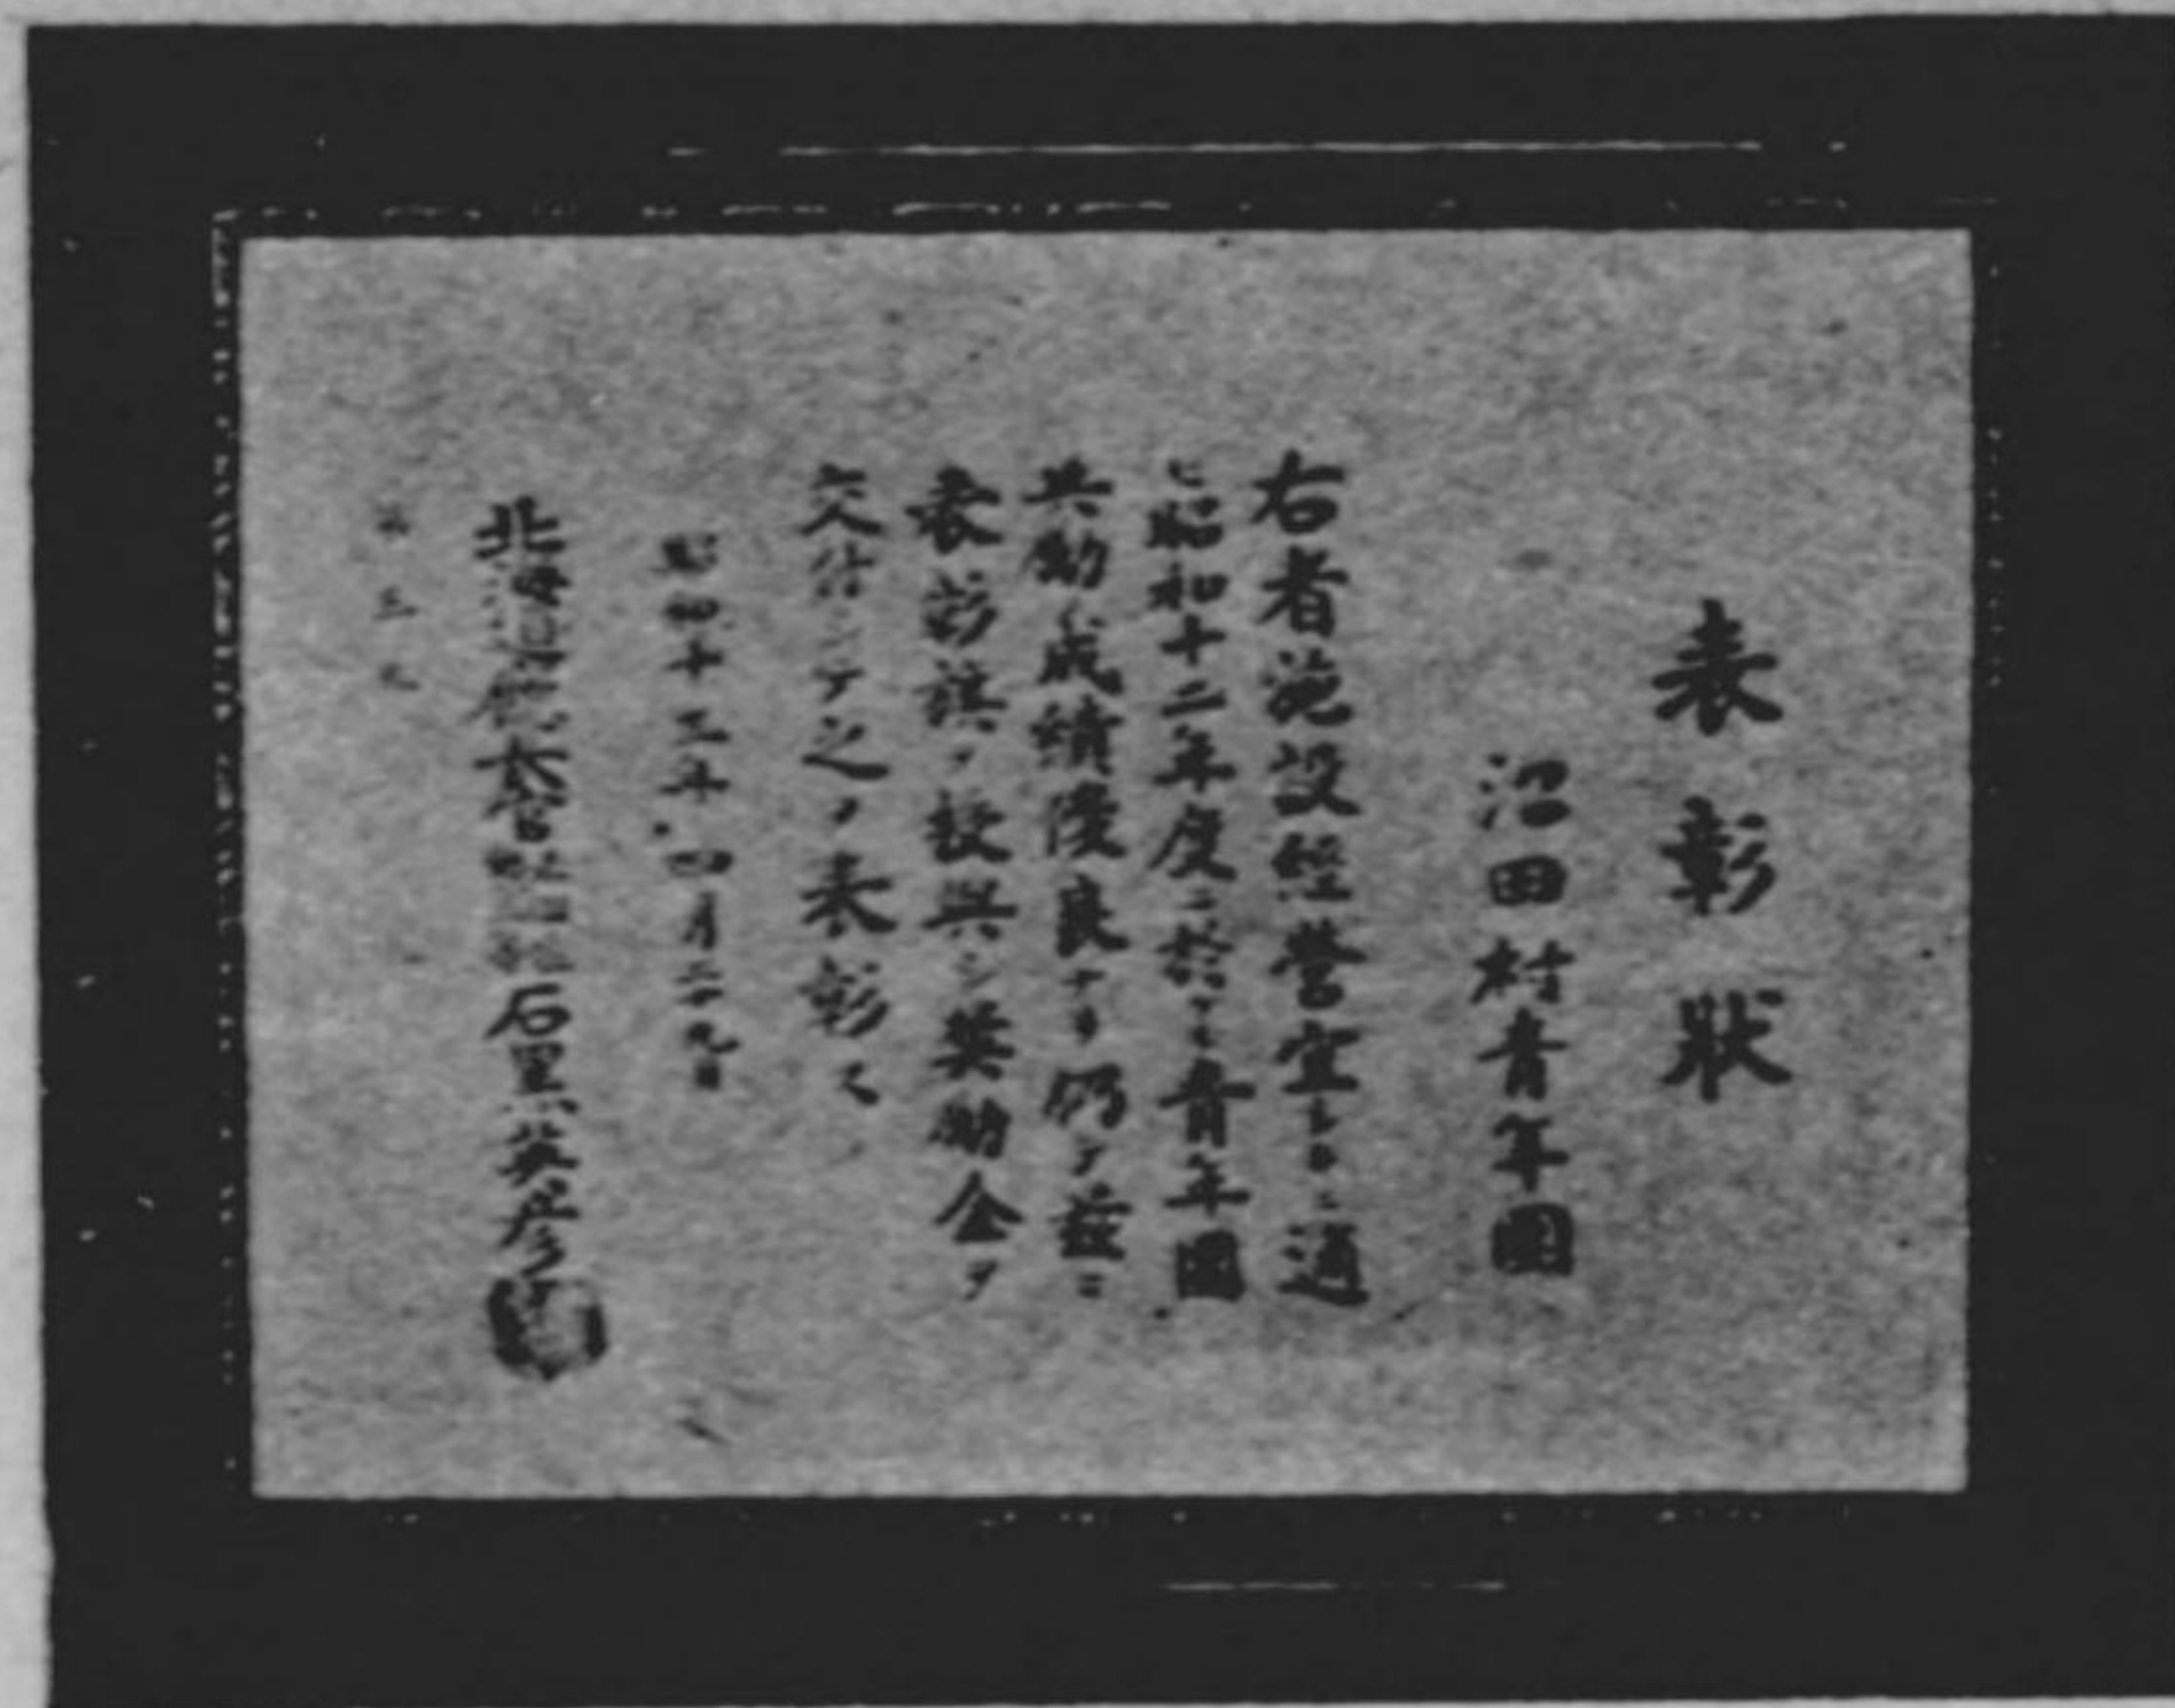 表彰狀
沼田村青年團
右者施設經營宜シキニ適
ヒ昭和十二年度ニ於ケル青年團
共勵成績優良ナリ仍テ茲ニ
表彰旗ヲ授與シ奬勵金ヲ
交付シテ之ヲ表彰ス
昭和十三年四月二十九日
北海道廳長官 石黒英彦